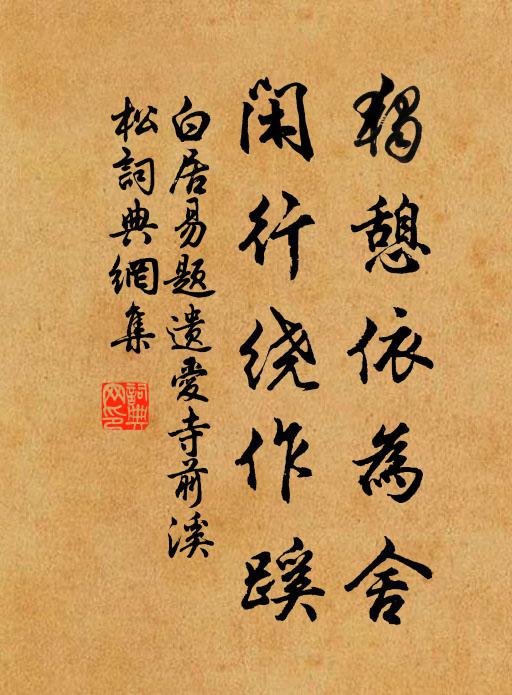 獨憩依為舍
閑行绕作蹊
白居易題遺愛寺前溪
松詞典網集
詞典網印